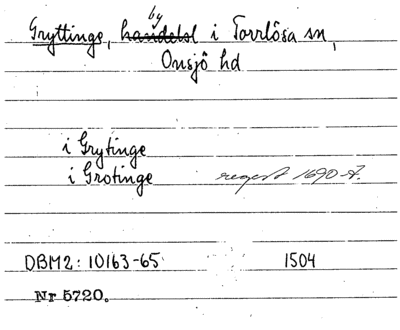 Gryttinge, by i Torrlösa sn,
Onsjö hd
i Grytinge
i Grotinge regest 1690-t.
DBM2: 10163-65 1504
Nr 5720.